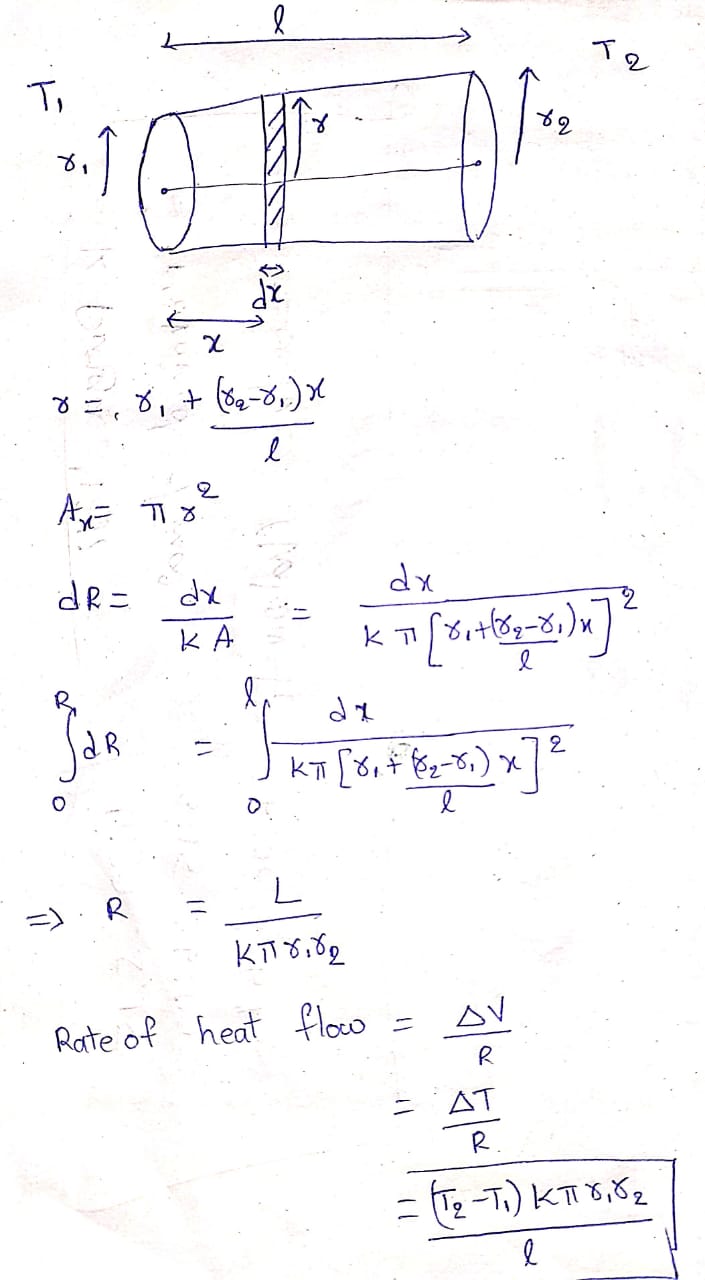 l
T₁ T₂
r₁ r r₂
dx
x
r = r₁ + (r₂-r₁)x / l
Aₓ = π r²
dR = dx / K A = dx / K π [r₁+(r₂-r₁)x / l]²
∫₀ᴿ dR = ∫₀ˡ dx / Kπ [r₁ + (r₂-r₁) x / l]²
=> R = L / Kπ r₁r₂
Rate of heat flow = ΔV / R
= ΔT / R
= (T₂-T₁) Kπ r₁r₂ / l